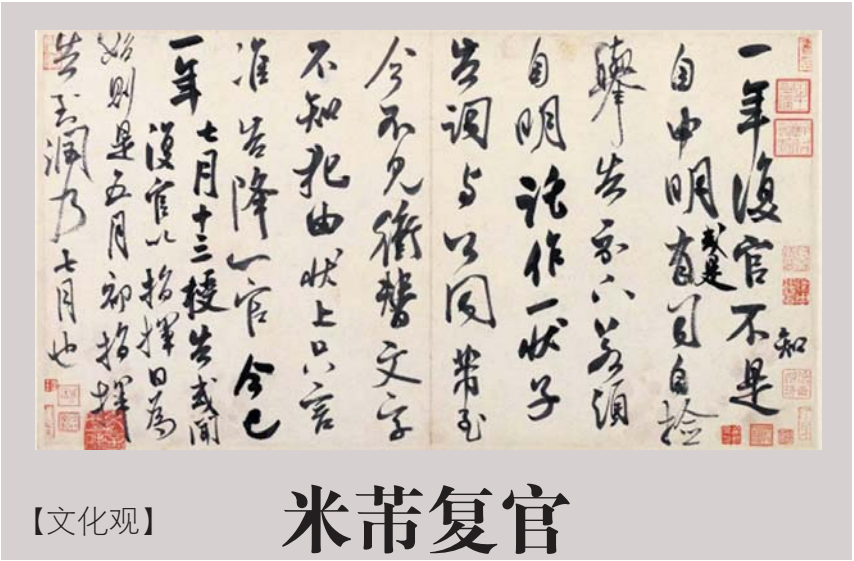 一年復官不是
知
自申明有司自檢
或是
舉告示下若須
自明託作一狀子
告調与公同芾至
今不見衝替文字
不知犯由狀上只言
准告降一官今已
一年七月十三授告或聞
復官以指揮日為
始則是五月初指揮
告到潤乃七月也
【文化观】
米芾复官